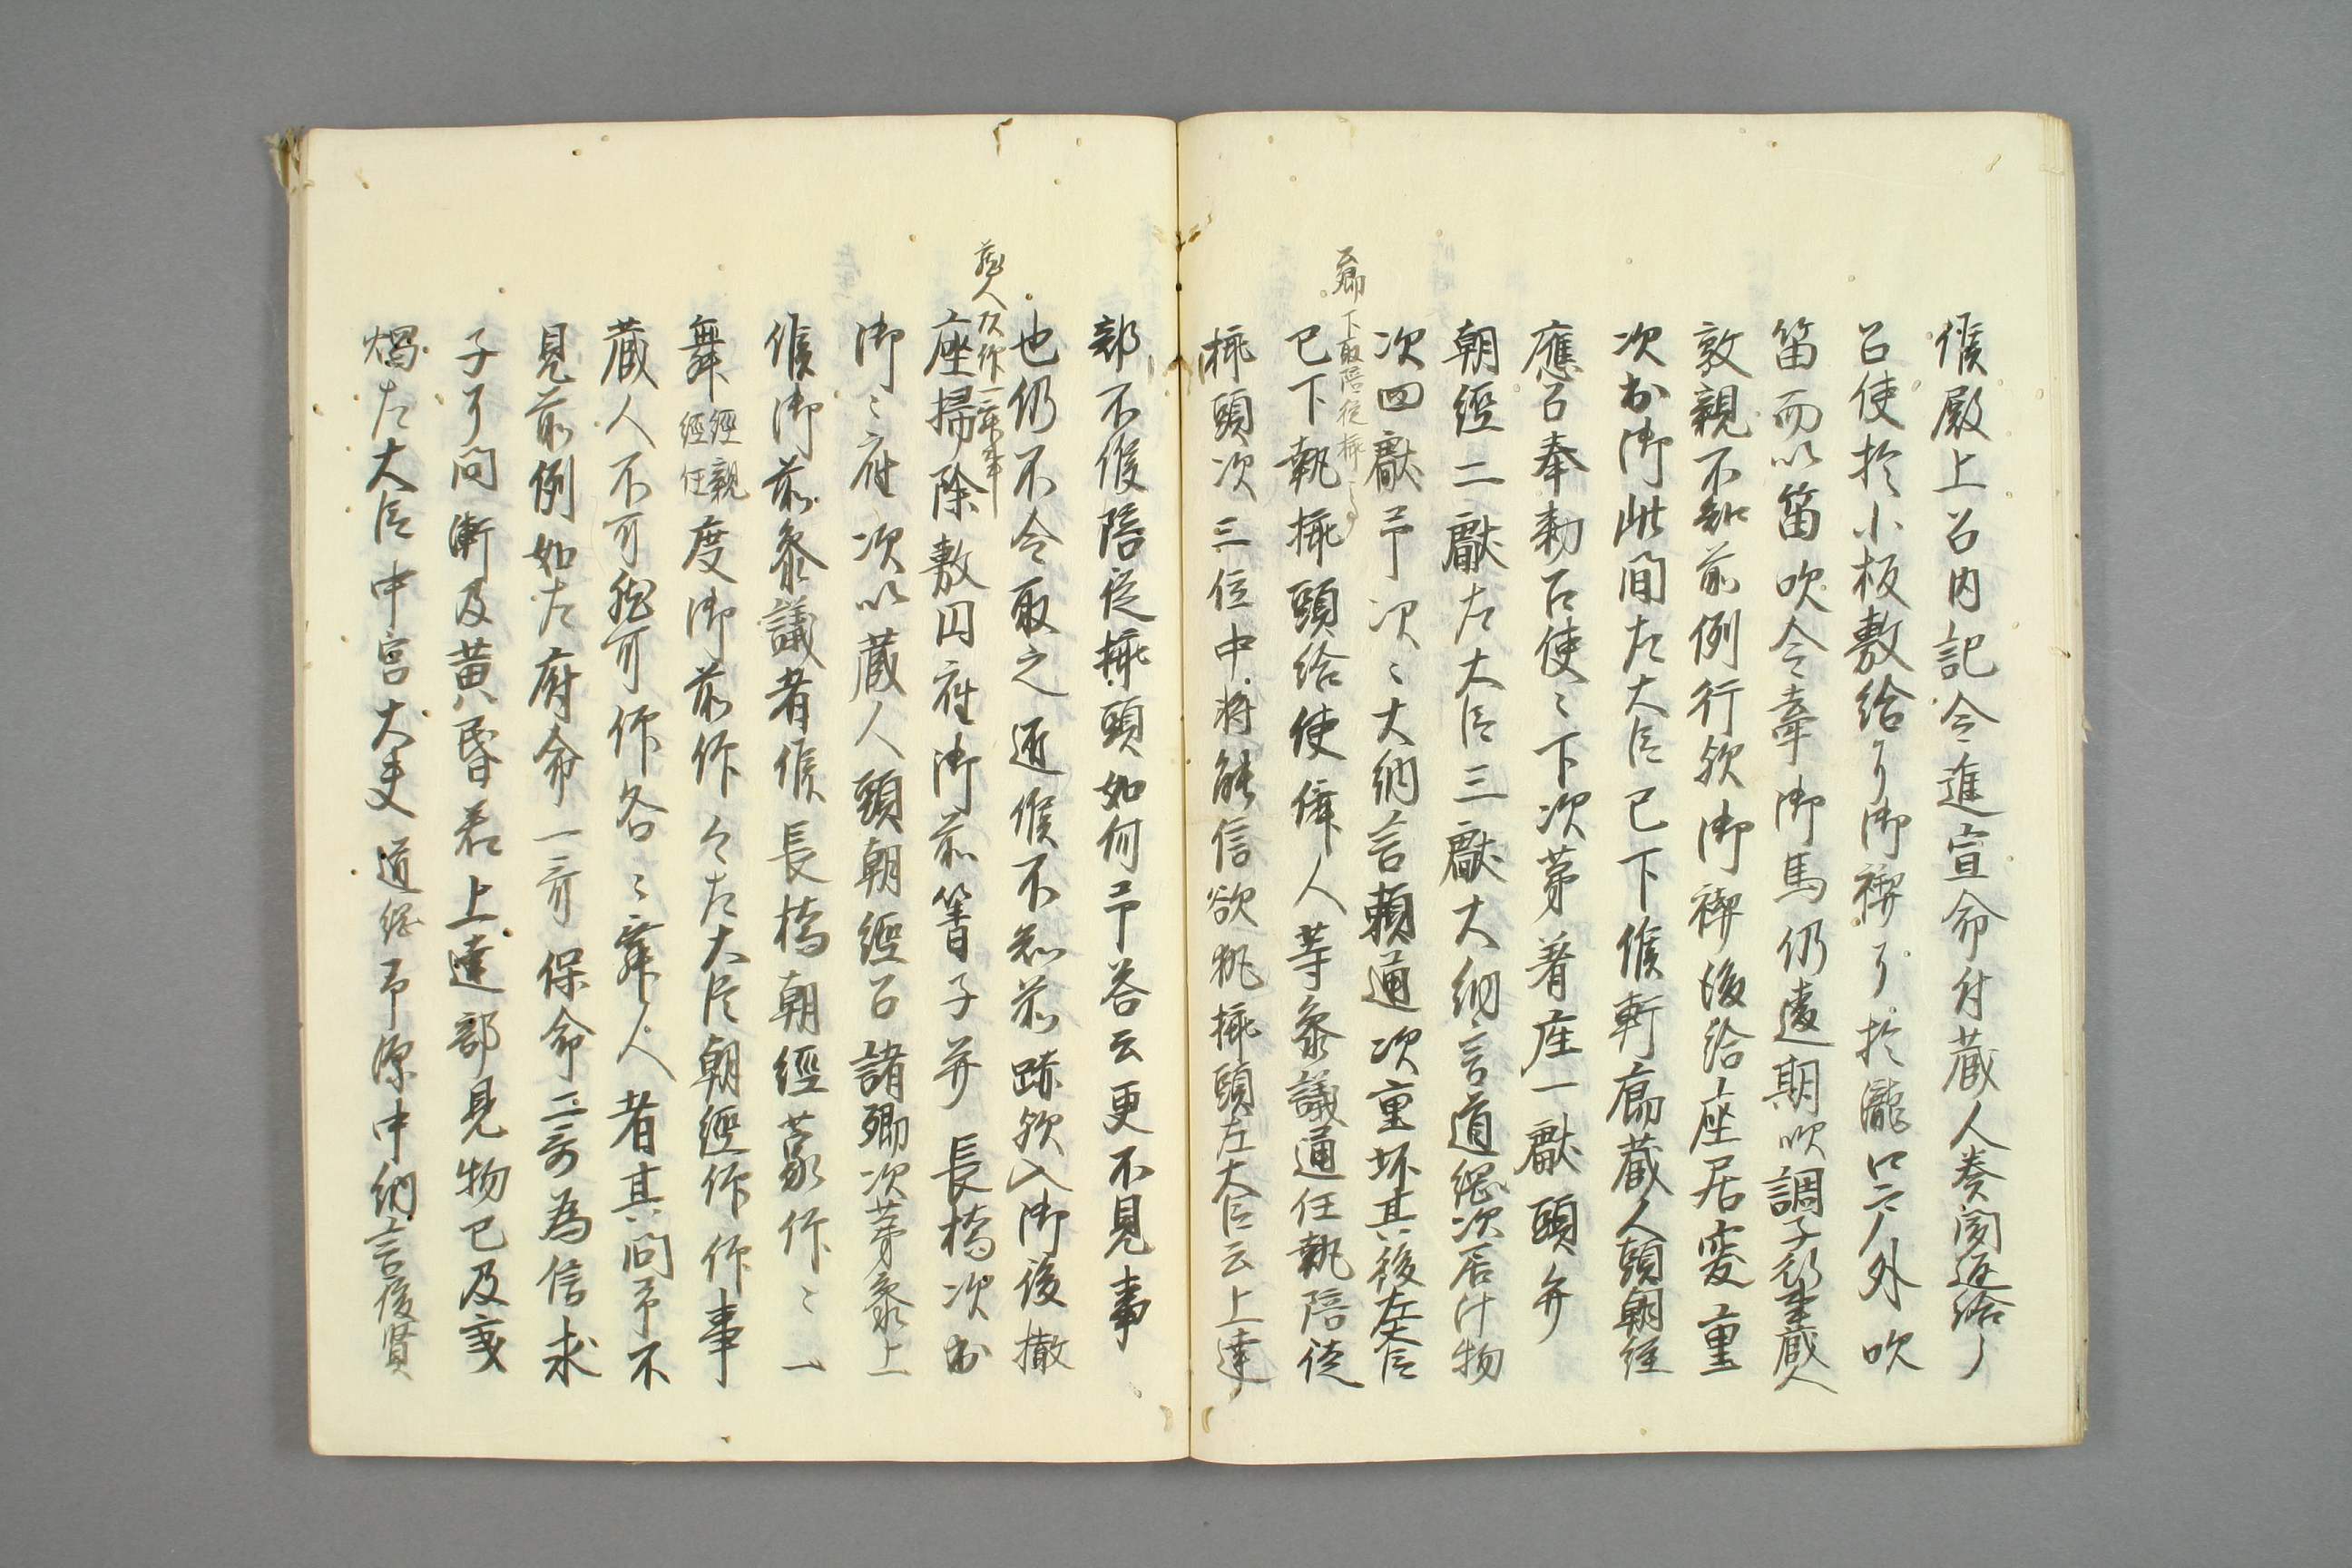 候殿上召内記令進宣命付蔵人奏聞返給了
召使於小板敷給了御禊了於瀧口戸外吹
笛而以笛吹令牽御馬仍遠期吹調子行事蔵人
敦親不知前例行欤御禊後給座居変重
次出御此間左大臣已下候軒廊蔵人頭朝経
應召奉勅召使〻下次第着座一獻頭弁
朝經二獻左大臣三獻大納言道綱次居汁物
次四獻予次〻大納言頼通次重坏其後左大臣
上卿下取陪従挿〻
已下執挿頭給使舞人等参議通任執陪従
挿頭次三位中将能信欲執挿頭左大臣云上達
部不候陪従挿頭如何予答云更不見事
也仍不令取之通候不知前跡欤入御後撤
蔵人仰一舞事
座掃除敷円座御前簀子并長橋次出
御〻座次以蔵人頭朝經召諸卿次第参上
候御前参議者候長橋朝經蒙仰〻一
舞經親經任度御前仰々左大臣朝經仰仰事
蔵人不可然可仰各〻舞人者其間予不
見前例如左府命一哥保命二哥為信求
子了間漸及黄昏若上達部見物已及秉
燭左大臣中宮大夫道綱予源中納言俊賢